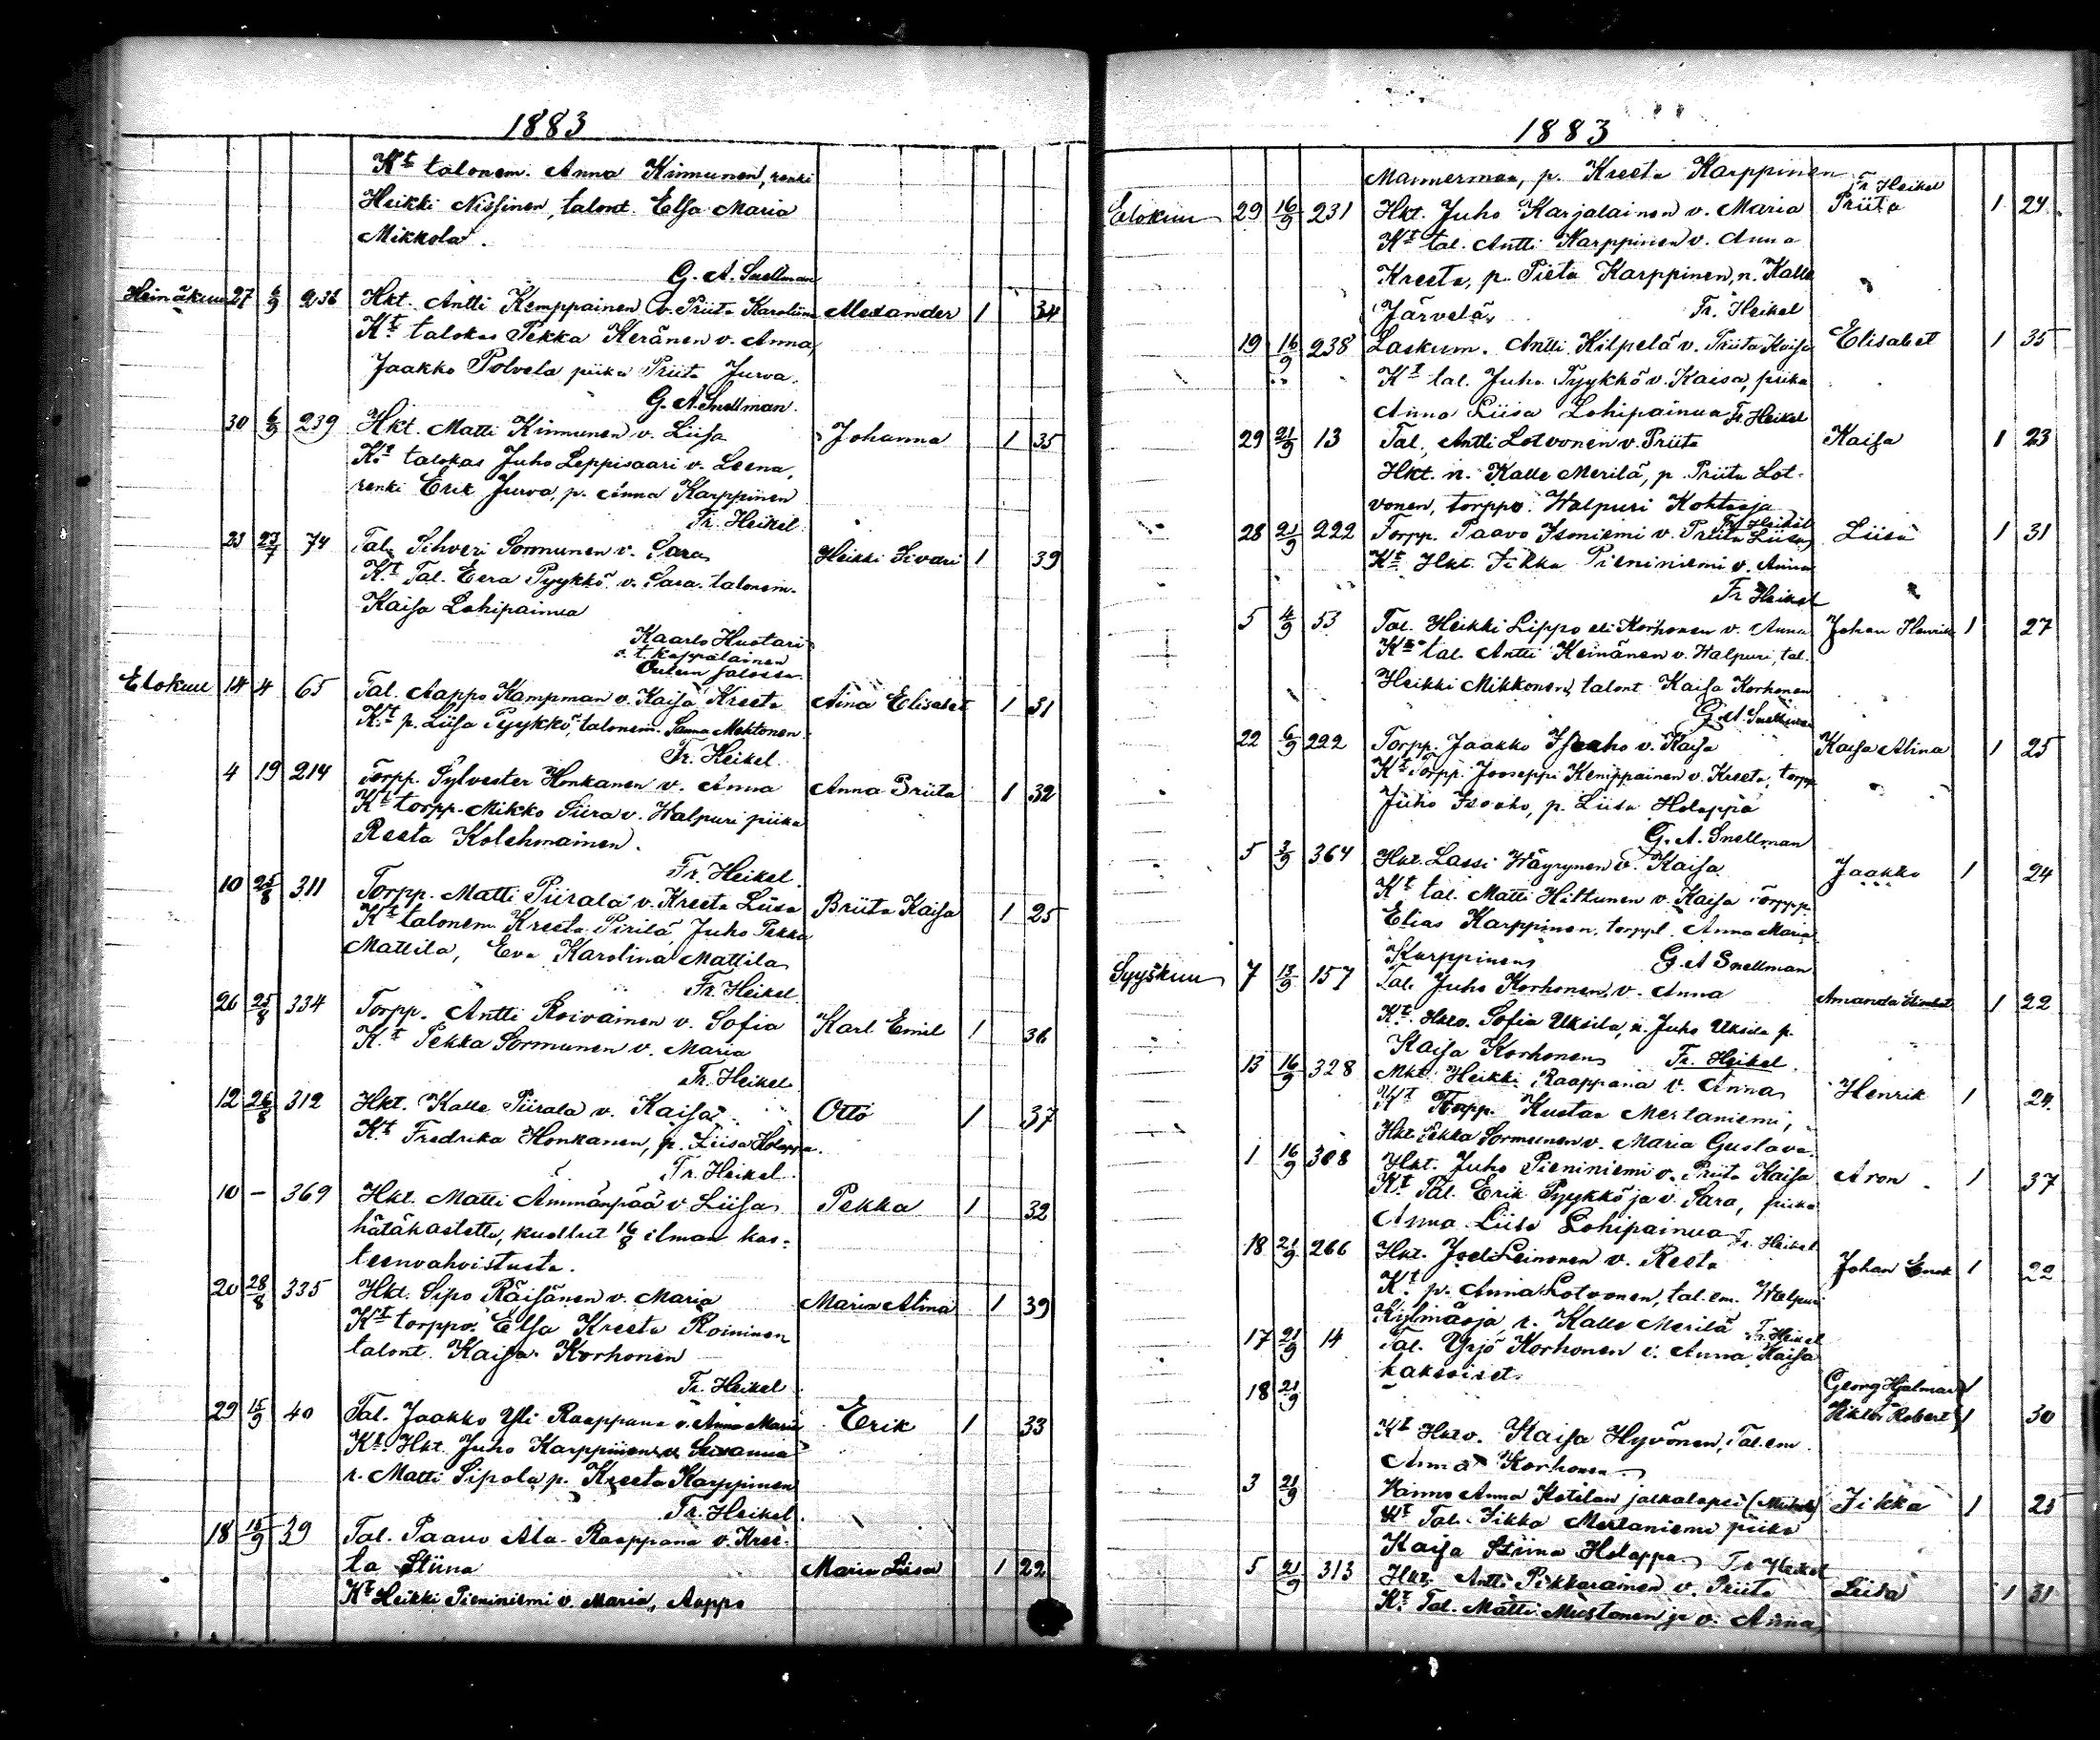 1883
Kt talonem. Anna Kinnunen, renki
Heikki Nissinen, talont. Elsa Maria
Mikkola.
G. A. Snellman
Heinäkuu 27 6/9 236 Hkt. Antti Kemppainen v. Priita Karoliina Alexander 1 34
Kt talokas Pekka Keränen v. Anna,
Jaakko Polvela piika Priita Jurva.
G. A. Snellman.
30 6/9 239 Hkt. Matti Kinnunen v. Liisa Johanna 1 35
Kt talokas Juho Leppisaari v. Leena,
renki Erik Jurva, p. Anna Karppinen
Fr. Heikel
23 23/7 74 Tal. Sihveri Sormunen v. Sara Heikki Iivari 1 39
Kt Tal. Eera Pyykkö v. Sara. talonem.
Kaisa Lohipainua
Kaarlo Hustari
v. t. kappalainen
Oulun jalossa
Elokuu 14 4 65 Tal. Aappo Kampman v. Kaisa Kreeta Aina Elisabet 1 31
Kt p. Liisa Pyykkö, talonem. Sanna Mehtonen.
Fr. Heikel.
4 19 214 Torpp. Sylvester Honkanen v. Anna Anna Priita 1 32
Kt torpp. Mikko Piira v. Walpuri piika
Reeta Kolehmainen.
Fr. Heikel.
10 25/8 311 Torpp. Matti Piirala v. Kreeta Liisa Briita Kaisa 1 25
Kt talonem Kreeta Pirilä, Juho Pekka
Mattila, Eva Karolina Mattila
Fr. Heikel.
26 25/8 334 Torpp. Antti Roivainen v. Sofia Karl Emil 1 36
Kt Pekka Sormunen v. Maria
Fr. Heikel.
12 26/8 312 Hkt. Kalle Piirala v. Kaisa Otto 1 37
Kt Fredrika Honkanen, p. Liisa Holappa.
Fr. Heikel.
10 - 369 Hkt. Matti Ämmänpää v Liisa Pekka 1 32
hätäkastettu, kuollut 16/8 ilman kas=
teenvahvistusta.
20 28/8 335 Hkt. Sipo Räisänen v. Maria Maria Alina 1 39
Kt torppv. Elsa Kreeta Roininen
talont. Kaisa Korhonen
Fr. Heikel
29 15/9 40 Tal. Jaakko Yli Raappana v. Anna Maria Erik 1 33
Kt. Hkt. Juho Karppinen v. Susanna
r. Matti Sipola, p. Kreeta Karppinen
Fr. Heikel.
18 15/9 39 Tal. Paavo Ala-Raappana v. Kree-
ta Stiina Maria Liisa 1 22
Kt Heikki Pieniniemi v. Maria, Aappo
1883
Mannermaa, p. Kreeta Karppinen
Fr. Heikel
Elokuu 29 16/9 231 Hkt. Juho Karjalainen v. Maria Priita 1 24
Kt tal. Antti Karppinen v. Anna
Kreeta, p. Pieta Karppinen, n. Kalle
Järvelä, Fr. Heikel
19 16/9 238 Laskum. Antti Kilpelä v. Priita Kaisa Elisabet 1 35
Kt tal. Juho Pyykkö v. Kaisa, piika
Anna Liisa Lohipainua Fr. Heikel
29 21/9 13 Tal. Antti Lotvonen v. Priita Kaisa 1 23
Hkt. n. Kalle Merilä, p. Priita Lot-
vonen, torppv. Walpuri Kohtaoja
Fr. Heikel
28 21/9 222 Torpp. Paavo Isoniemi v. Priita Liisa Liisa 1 31
Kt Hkt. Iikka Pieniniemi v. Anna
Fr. Heikel
5 4/9 53 Tal. Heikki Lippo eli Korhonen v. Anna Johan Henrik 1 27
Kt tal. Antti Keinänen v. Walpuri, tal.
Heikki Mikkonen, talont Kaisa Korhonen
G. A. Snellman
22 6/9 222 Torpp. Jaakko Isoaho v. Kaisa Kaisa Alina 1 25
Kt Torpp. Jooseppi Kemppainen v. Kreeta, torpp.
Juho Isoaho, p. Liisa Holappa
G. A. Snellman
5 3/9 364 Hkt. Lassi Wäyrynen v. Kaisa Jaakko 1 24
Kt tal. Matti Hiltunen v. Kaisa torpp.
Elias Karppinen, torppt. Anna Maria
Karppinen G. A Snellman
Syyskuu 7 13/9 157 Tal. Juho Korhonen v. Anna Amanda Elisabet 1 22
Kt. Hktv. Sofia Uksila, n. Juho Uksila p.
Kaisa Korhonen Fr. Heikel.
13 16/9 328 Mkt. Heikki Raappana v. Anna Henrik 1 24
Kt Torpp. Kustaa Mertaniemi,
Hkt. Pekka Sormunen v. Maria Gustava.
1 16/9 308 Hkt. Juho Pieniniemi v. Priita Kaisa Aron 1 37
Kt Tal. Erik Pyykkö ja v. Sara, piika
Anna Liisa Lohipainua Fr. Heikel
18 21/9 266 Hkt. Joeli Leinonen v. Reeta Johan Enok 1 22
Kt. p. Anna Lotvonen, tal. em. Walpuri
Kylmäoja r. Kalle Merilä Fr. Heikel
17 21/9 14 Tal. Yrjö Korhonen v. Anna Kaisa
kaksoiset.
18 21/9 Georg Hjalmar 1
Viktor Robert 1 30
Kt Hktv. Kaisa Hyvönen, Tal. em.
Anna Korhonen
3 21/9 Hinno Anna Ketilan jalkalapsi Iikka 1 25
Kt Tal. Iikka Mertaniemi piika
Kaisa Stiina Holappa Fr Heikel
5 21/9 313 Hkt. Antti Pikkarainen v. Priita Liisa 1 31
Kt. Tal. Matti Mustonen ja v. Anna,